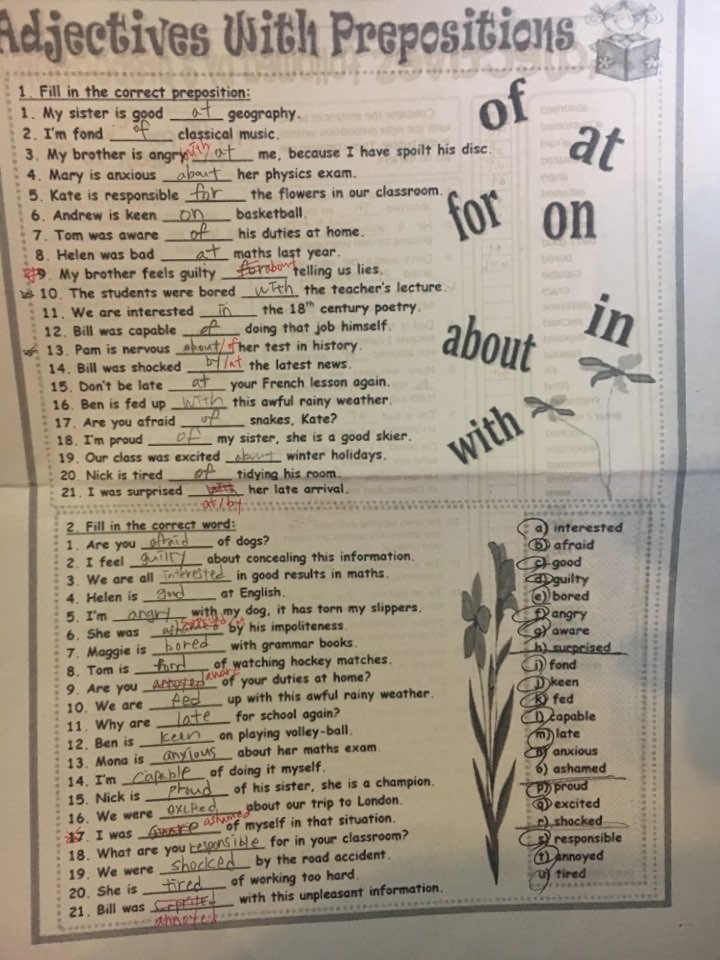 Adjectives With Prepositions
1. Fill in the correct preposition:
1. My sister is good at geography.
2. I'm fond of classical music.
3. My brother is angry with/at me, because I have spoilt his disc.
4. Mary is anxious about her physics exam.
5. Kate is responsible for the flowers in our classroom.
6. Andrew is keen on basketball.
7. Tom was aware of his duties at home.
8. Helen was bad at maths last year.
9. My brother feels guilty for about telling us lies.
10. The students were bored with the teacher's lecture.
11. We are interested in the 18th century poetry.
12. Bill was capable of doing that job himself.
13. Pam is nervous about/of her test in history.
14. Bill was shocked by/at the latest news.
15. Don't be late at your French lesson again.
16. Ben is fed up with this awful rainy weather.
17. Are you afraid of snakes, Kate?
18. I'm proud of my sister, she is a good skier.
19. Our class was excited about winter holidays.
20 Nick is tired of tidying his room.
21. I was surprised with her late arrival.
at/by
of
at
for
on
in
about
with
2. Fill in the correct word:
1. Are you afraid of dogs?
2. I feel guilty about concealing this information.
3. We are all interested in good results in maths.
4. Helen is good at English.
5. I'm angry with my dog, it has torn my slippers.
6. She was by his impoliteness.
7. Maggie is bored with grammar books.
8. Tom is fond of watching hockey matches.
9. Are you annoyed aware of your duties at home?
10. We are fed up with this awful rainy weather.
11. Why are late for school again?
12. Ben is keen on playing volley-ball.
13. Mona is anxious about her maths exam.
14. I'm capable of doing it myself.
15. Nick is proud of his sister, she is a champion.
16. We were excited about our trip to London.
17. I was aware ashamed of myself in that situation.
18. What are you responsible for in your classroom?
19. We were shocked by the road accident.
20. She is tired of working too hard.
21. Bill was with this unpleasant information.
annoyed
a) interested
b) afraid
c) good
d) guilty
e) bored
f) angry
g) aware
h) surprised
i) fond
j) keen
k) fed
l) capable
m) late
n) anxious
o) ashamed
p) proud
q) excited
r) shocked
s) responsible
t) annoyed
u) tired